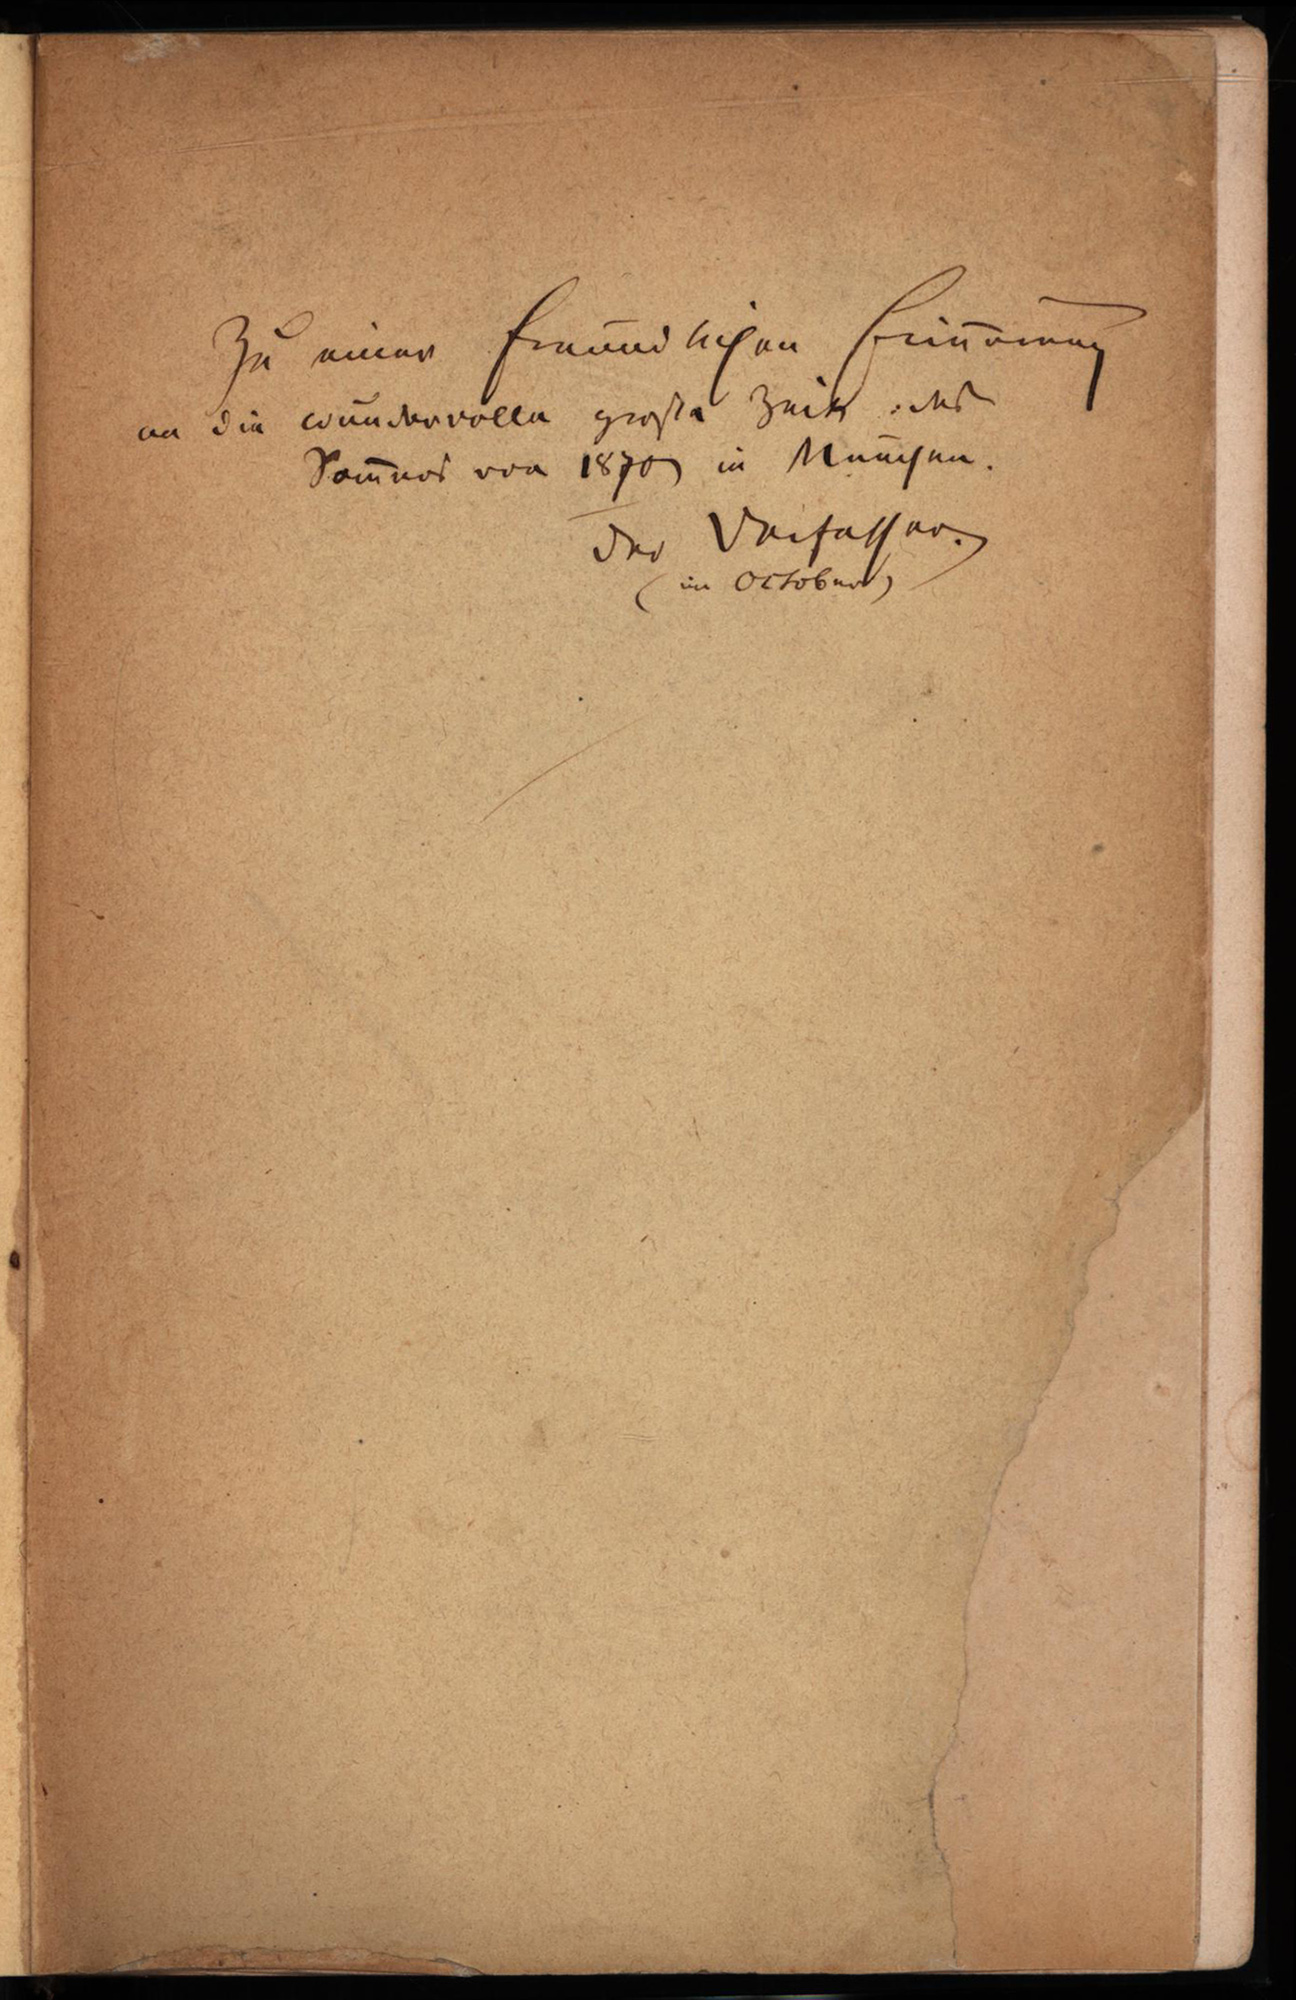 Zu einer freundlichen Erinnerung
an die wundervolle große Zeit des
Som̅ers von 1870 in München.
Der Verfasser.
(im October)